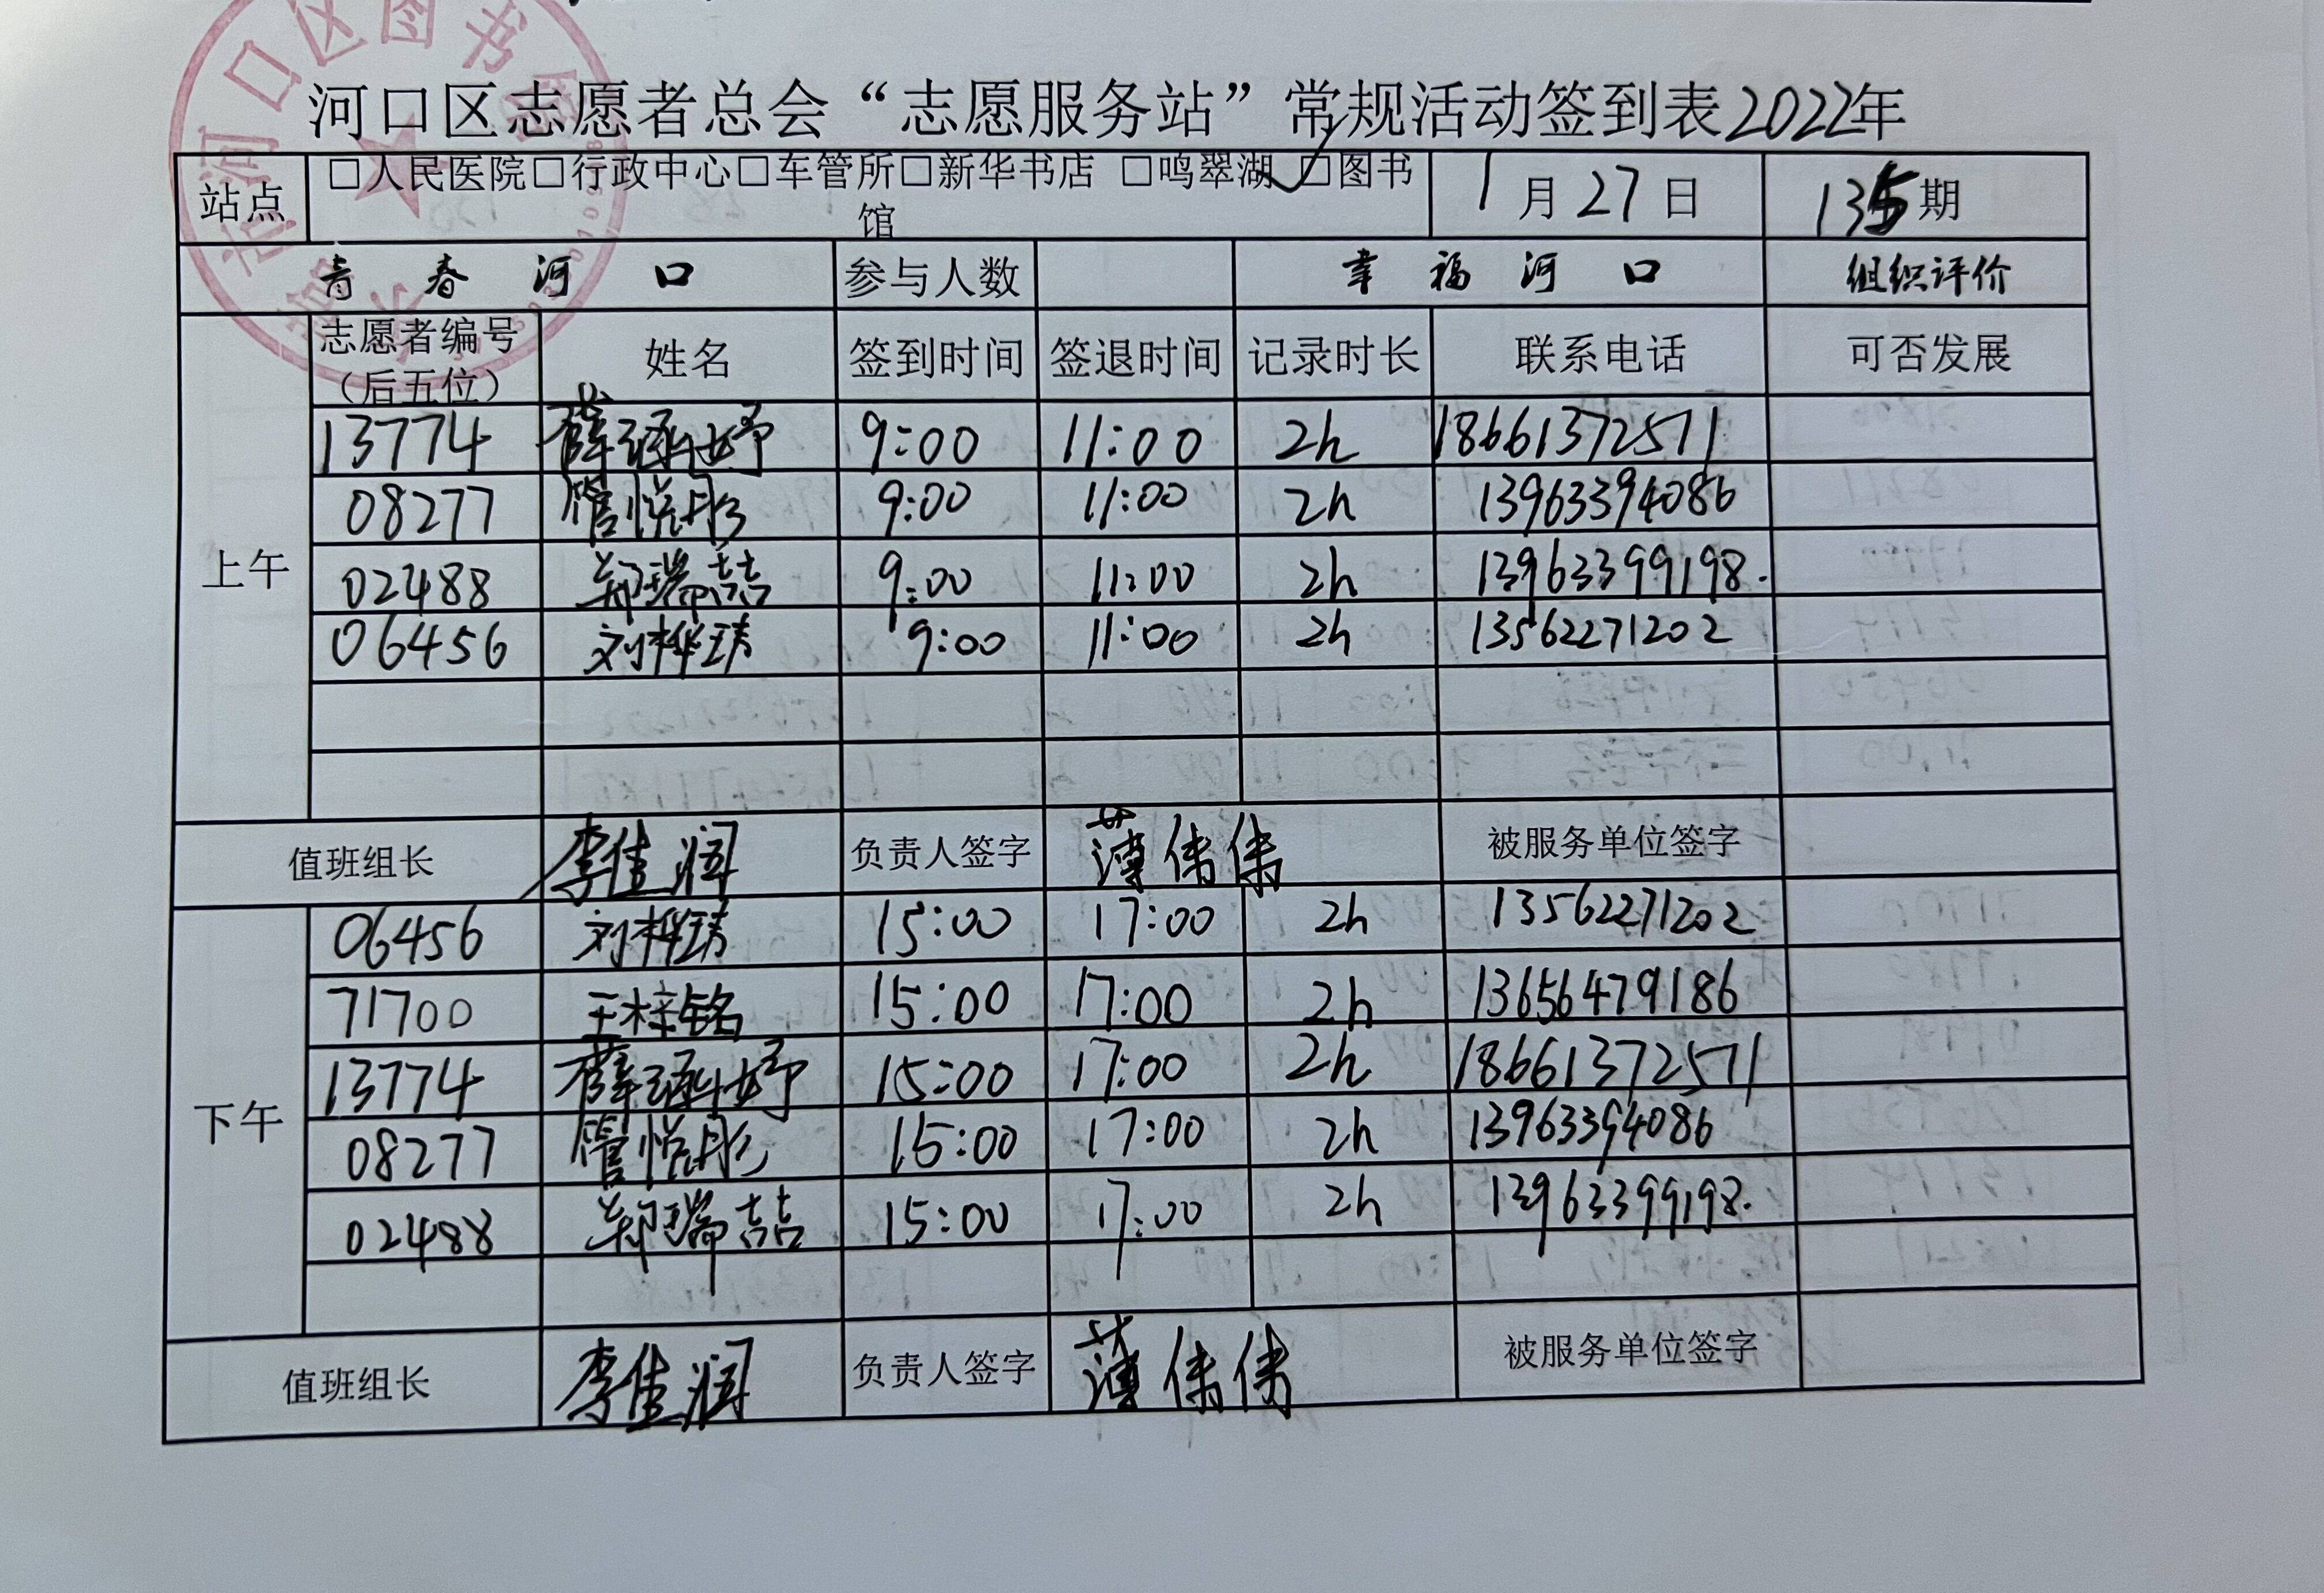 河口区志愿者总会“志愿服务站”常规活动签到表2022年
站点 □人民医院□行政中心□车管所□新华书店 □鸣翠湖 ✓□图书馆 1月27日 135期
青春河口 参与人数 幸福河口 组织评价
志愿者编号（后五位） 姓名 签到时间 签退时间 记录时长 联系电话 可否发展
上午
13774 薛涵妤 9:00 11:00 2h 18661372571
08277 管悦彤 9:00 11:00 2h 13963394086
02488 郑瑞喆 9:00 11:00 2h 13963399198.
06456 刘桦琦 9:00 11:00 2h 13562271202
值班组长 李佳润 负责人签字 薄伟伟 被服务单位签字
下午
06456 刘桦琦 15:00 17:00 2h 13562271202
71700 王梓铭 15:00 17:00 2h 13656479186
13774 薛涵妤 15:00 17:00 2h 18661372571
08277 管悦彤 15:00 17:00 2h 13963394086
02488 郑瑞喆 15:00 17:00 2h 13963399198.
值班组长 李佳润 负责人签字 薄伟伟 被服务单位签字
河口区图书馆